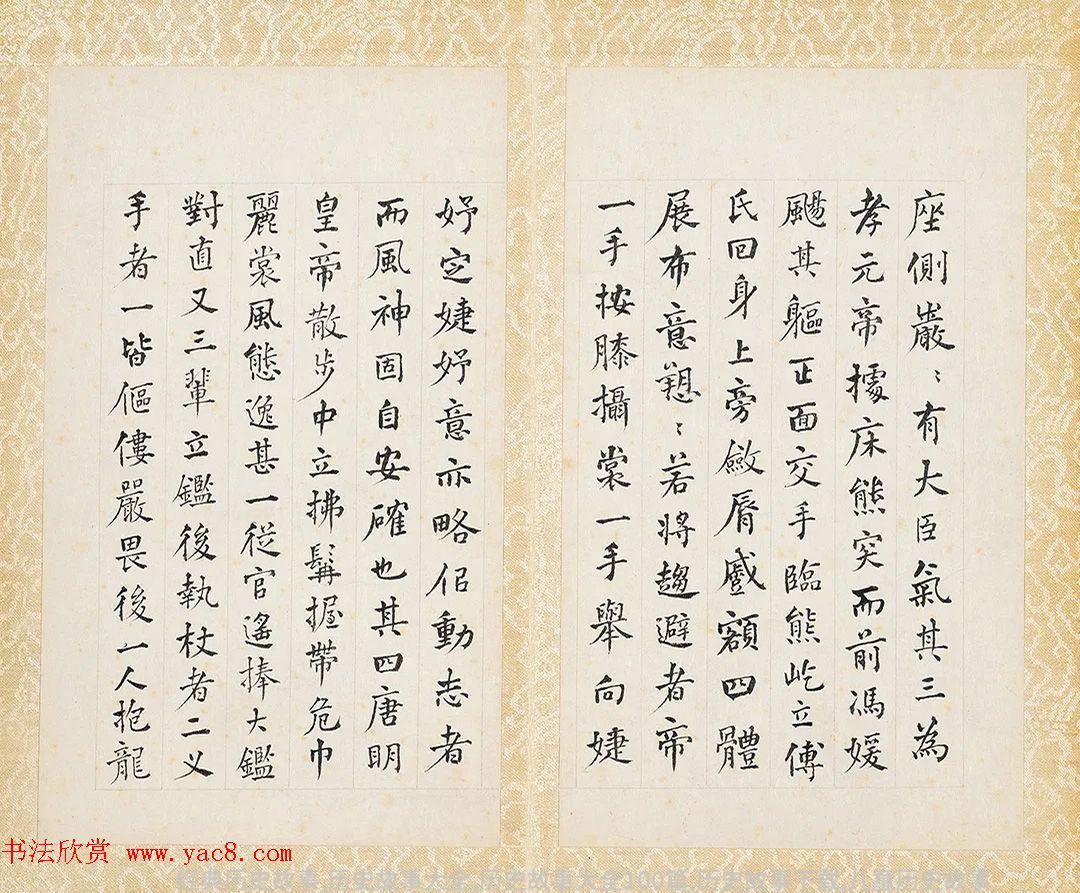 座側嚴〻有大臣氣其三為
孝元帝據床熊突而前馮媛
颺其軀正面交手臨熊屹立傅
氏回身上旁斂脣蹙額四體
展布意〻若將趨避者帝
一手按膝攝裳一手舉向婕
妤定婕妤意亦略佀動志者
而風神固自安確也其四唐明
皇帝散步中立拂髯握帶危巾
麗裳風態逸甚一從官遙捧大鑑
對直又三輩立鑑後執杖者二义
手者一皆傴僂嚴畏後一人抱龍
书法欣赏 www.yac8.com